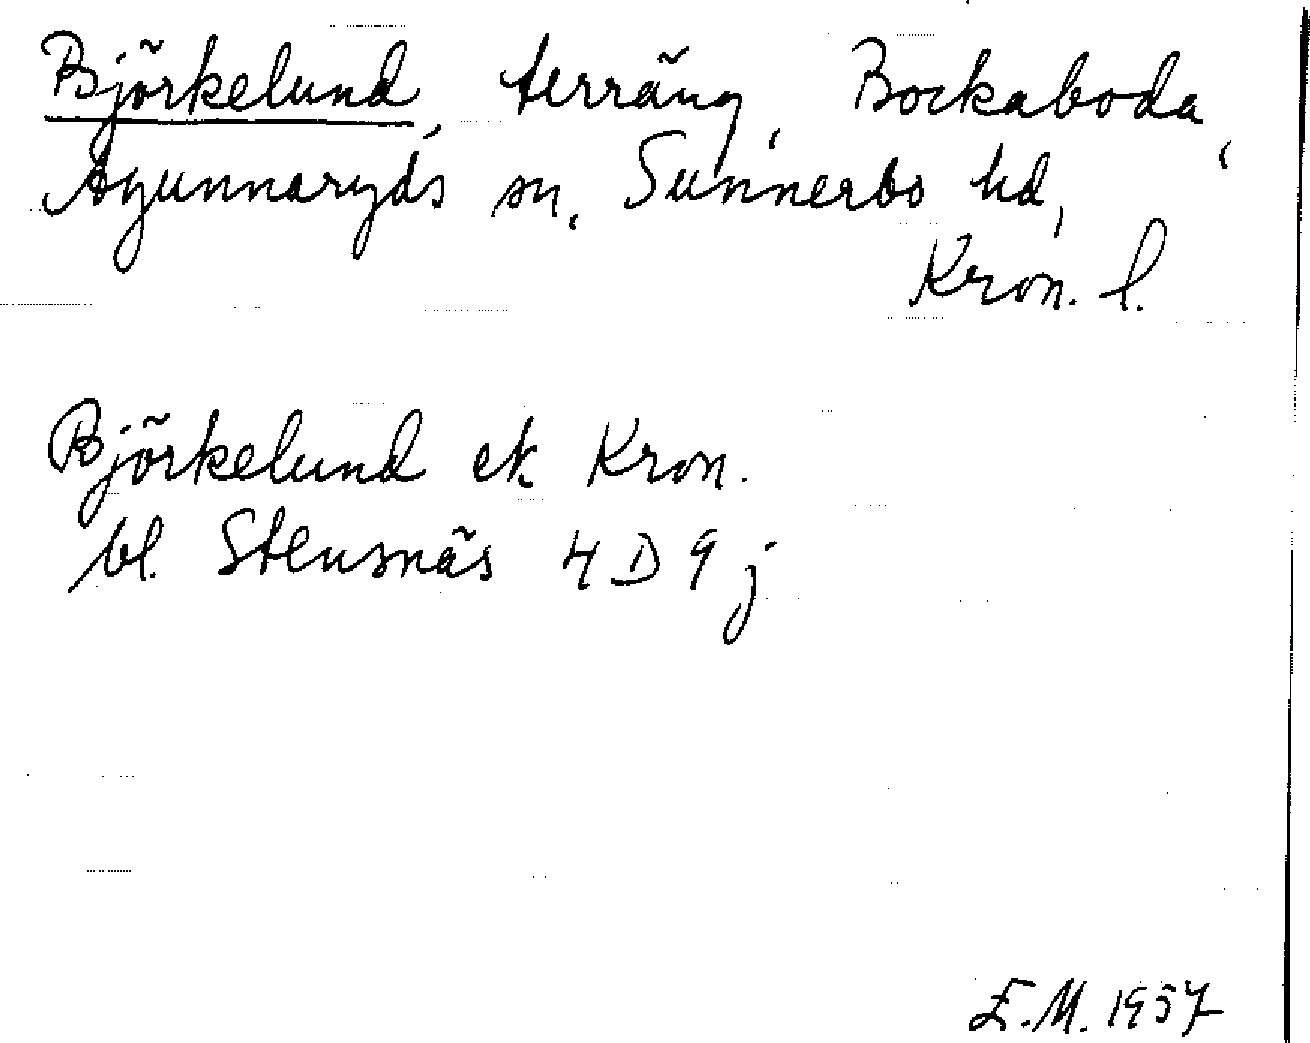 Björkelund, terräng, Bockaboda,
Agunnaryds sn, Sunnerbo hd,
Kron. l.
Björkelund ek Kron.
bl. Stensnäs 4 D 9 j
E.M. 1957